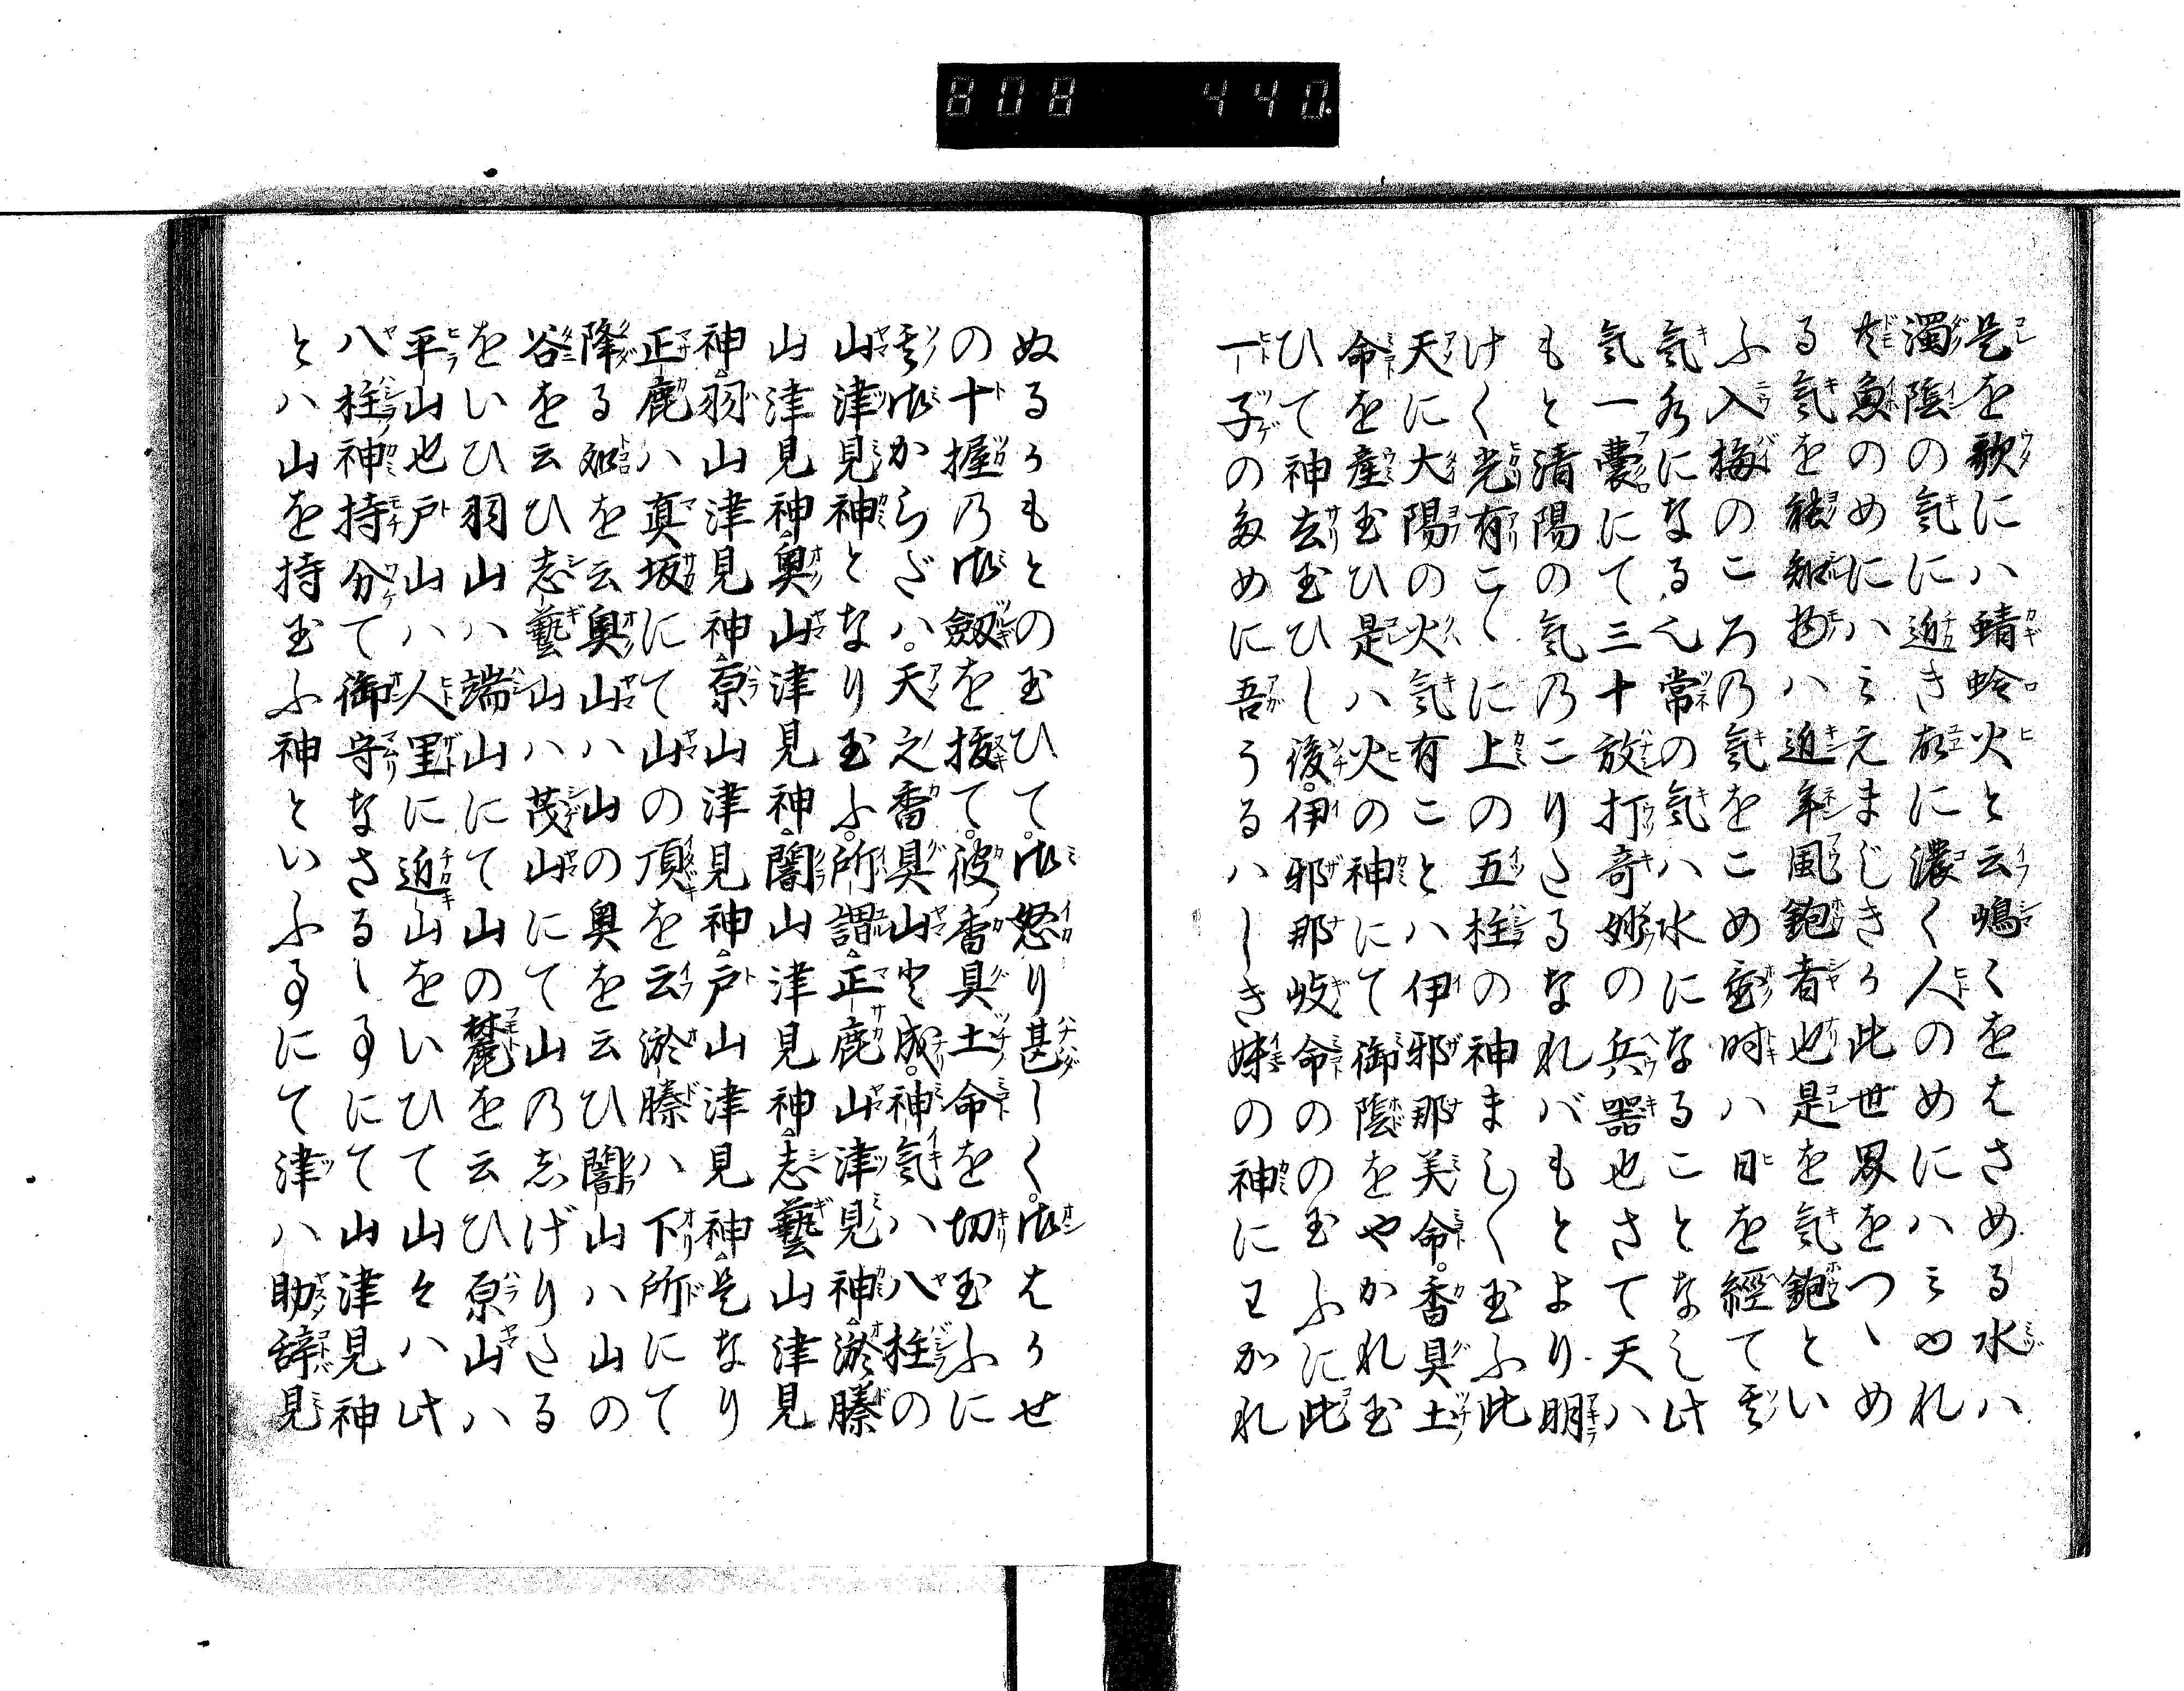 808 440
是を歌にハ蜻蛉火と云嶋〳〵をはさめる水ハ
濁陰の気に近き故に濃く人のめにハミゆれ
共魚のめにハミえまじき〻此世界をつゝめ
る気を能知物ハ近年風鉋者也是を気鉋とい
ふ入梅のころの気をこめ置時ハ日を經て其
気水になる也常の気ハ水になることなし此
気一嚢にて三十放打奇妙の兵器也さて天ハ
もと清陽の気のこりたるなれバもとより明
けく光有こゝに上の五柱の神まし〳〵玉ふ此
天に大陽の火気有ことハ伊邪那美命香具土
命を産玉ひ是ハ火の神にて御陰をやかれ玉
ひて神去玉ひし後伊邪那岐命のの玉ふに此
一子のためにに吾うるハしき妹の神にわかれ
ぬるかもとの玉ひて御怒り甚しく御はかせ
の十握の御劔を抜て彼香具土命を切玉ふに
其御からざハ天之香具山と成神気ハ八柱の
山津見神となり玉ふ所謂正鹿山津見神淤縢
山津見神奥山津見神闇山津見神志藝山津見
神羽山津見神原山津見神戸山津見神是なり
正鹿ハ真坂にて山の頂を云淤縢ハ下所にて
降る処を云奥山ハ山の奥を云ひ闇山ハ山の
谷を云ひ志藝山ハ茂山にて山の志げりたる
をいひ羽山ハ端山にて山の麓を云ひ原山ハ
平山也戸山ハ人里に近き山をいひて山々ハ此
八柱神持分て御守なさるゝ事にて山津見神
とハ山を持玉ふ神といふ事にて津ハ助辞見